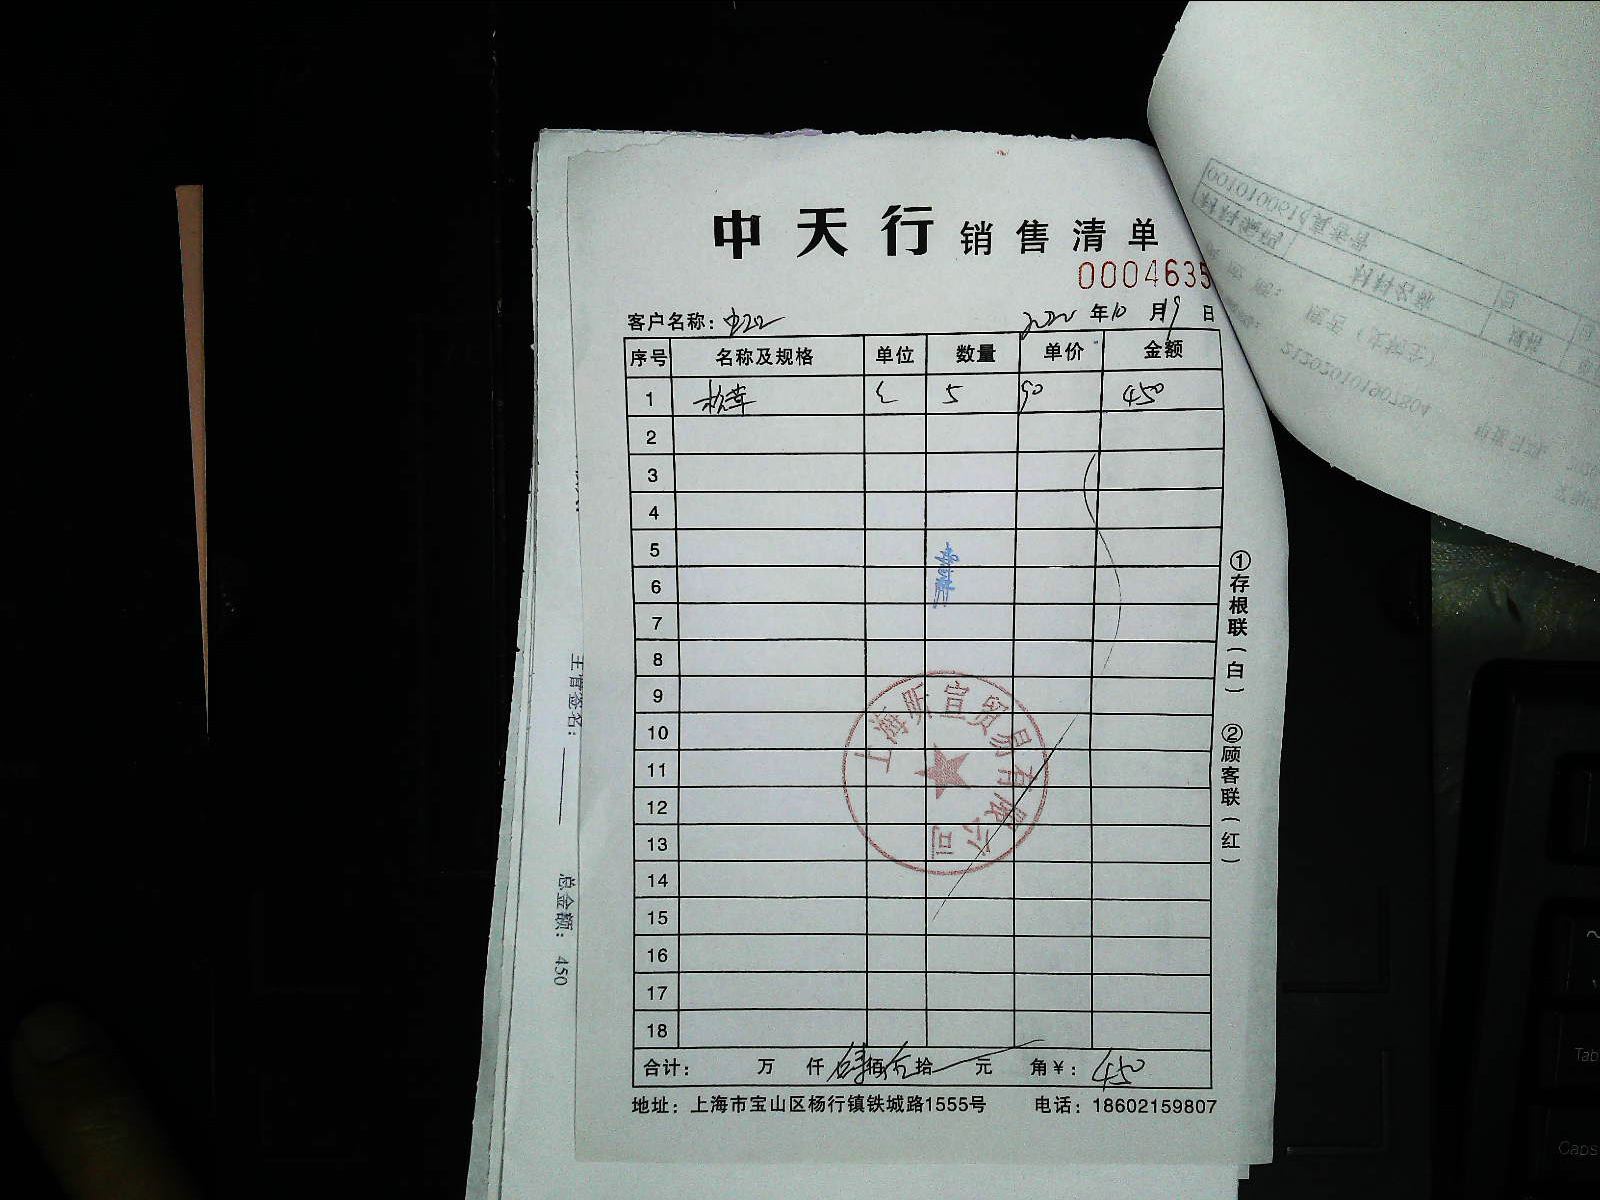 中天行 销售清单
0004635
客户名称：
年10月19日
序号 名称及规格 单位 数量 单价 金额
1 松茸 5 90 450
2
3
4
5
6
7
8
9
10
11
12
13
14
15
16
17
18
合计： 万 仟 肆佰伍拾 元 角￥：450
地址：上海市宝山区杨行镇铁城路1555号 电话：18602159807
①存根联（白）
②顾客联（红）
上海昕宣贸易有限公司
主管签名：
总金额：450